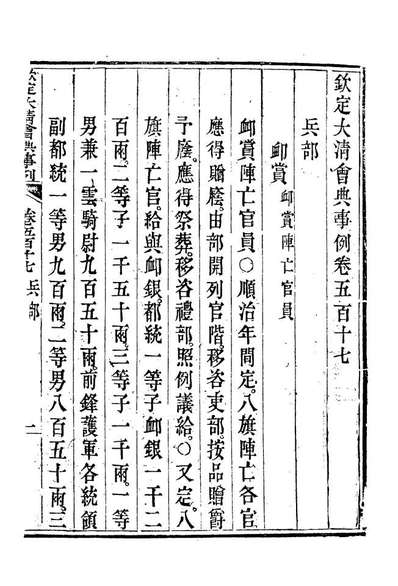 欽定大清會典事例卷五百十七
兵部
卹賞 卹賞陣亡官員
卹賞陣亡官員○順治年間定八旗陣亡各官
應得贈廕由部開列官階移咨吏部按品贈爵
予廕應得祭葬移咨禮部照例議給○又定八
旗陣亡官給與卹銀都統一等子卹銀一千二
百兩二等子一千五十兩三等子一千兩一等
男兼一雲騎尉九百五十兩前鋒護軍各統領
副都統一等男九百兩二等男八百五十兩三
欽定大清會典事例 卷五百十七 兵部 一